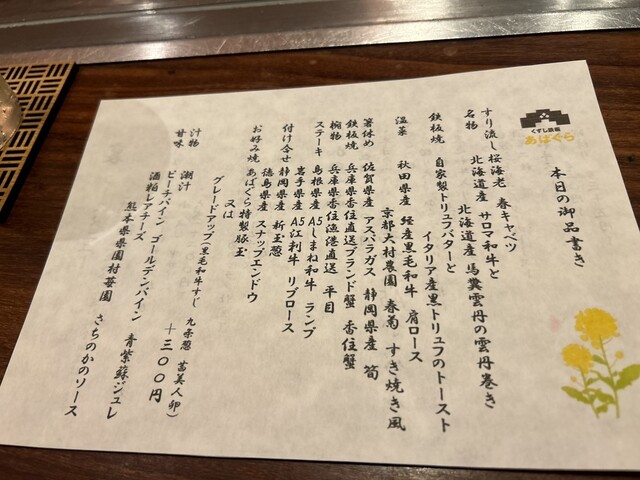 くずし鉄板
あばぐら
本日の御品書き
すり流し 桜海老 春キャベツ
名物 北海道産 サロマ和牛と
北海道産 馬糞雲丹の雲丹巻き
鉄板焼 自家製トリュフバターと
イタリア産黒トリュフのトースト
温菜 秋田県産 経産黒毛和牛 肩ロース
京都大村農園 春菊 すき焼き風
箸休め 佐賀県産 アスパラガス 静岡県産 筍
鉄板焼 兵庫県香住直送ブランド蟹 香住蟹
椀物 兵庫県香住漁港直送 平目
ステーキ 島根県産 A5しまね和牛 ランプ
岩手県産 A5江刺牛 リブロース
付け合せ 静岡県産 新玉葱
徳島県産 スナップエンドウ
お好み焼 あばぐら特製豚玉
又は
グレードアップ(黒毛和牛すじ 九条葱 茜美人卵)
+300円
汁物 潮汁
甘味 ピーチパイン ゴールデンパイン 青紫蘇ジュレ
酒粕レアチーズ
熊本県県園村苺園 さちのかのソース